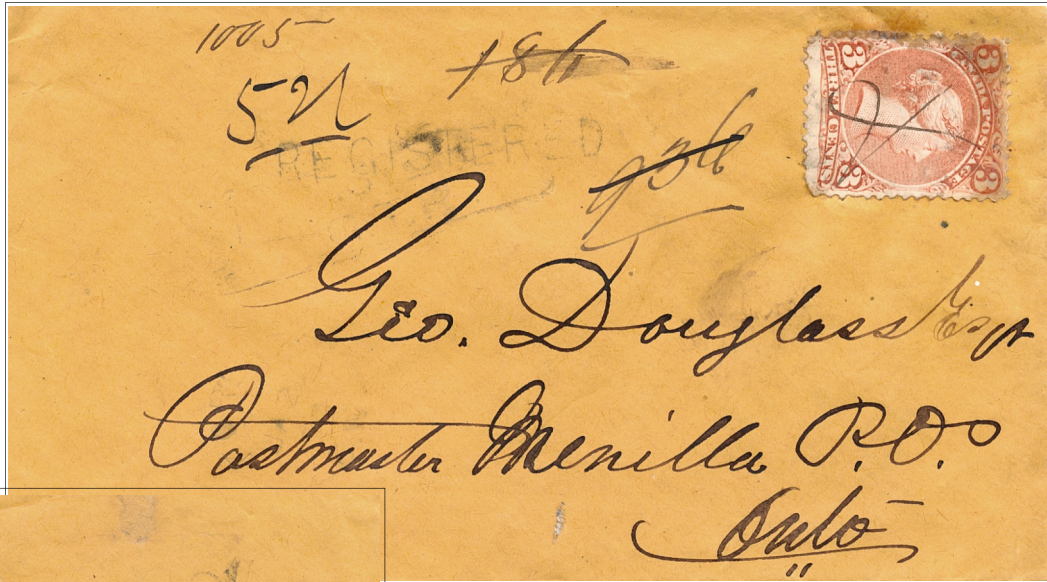 1005
5N
186
REGISTERED
936
3 3
CANADA POSTAGE
THREE CENTS
3 3
Geo. Douglass Esqr
Postmaster Menilla P.O.
Onto